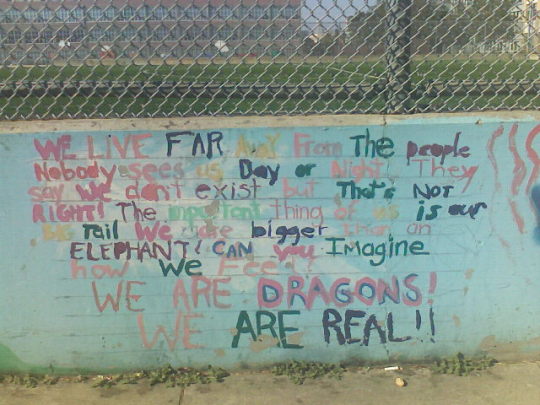 WE LIVE FAR AWAY From The people
Nobody sees us Day or Night! They
say we don't exist but That's NOT
RIGHT! The important thing of us is our
BIG Tail We are bigger Than an
ELEPHANT! CAN you Imagine
how We Feel?
WE ARE DRAGONS!
WE ARE REAL!!